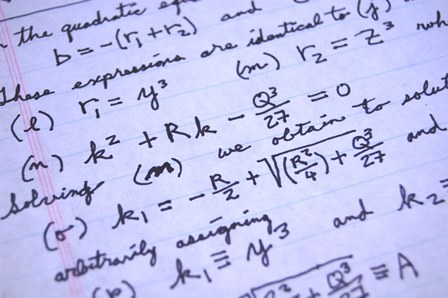 the quadratic
b = -(r₁+r₂) and
These expressions are identical to (j)
(l) r₁ = y³ (m) r₂ = z³
(n) k² + Rk - Q³/27 = 0
Solving (m) we obtain to
(o) k₁ = -R/2 + √((R²/4) + Q³/27) and
arbitrarily assigning
k₁ ≡ y³ and k₂ =
+ Q³/27 ≡ A